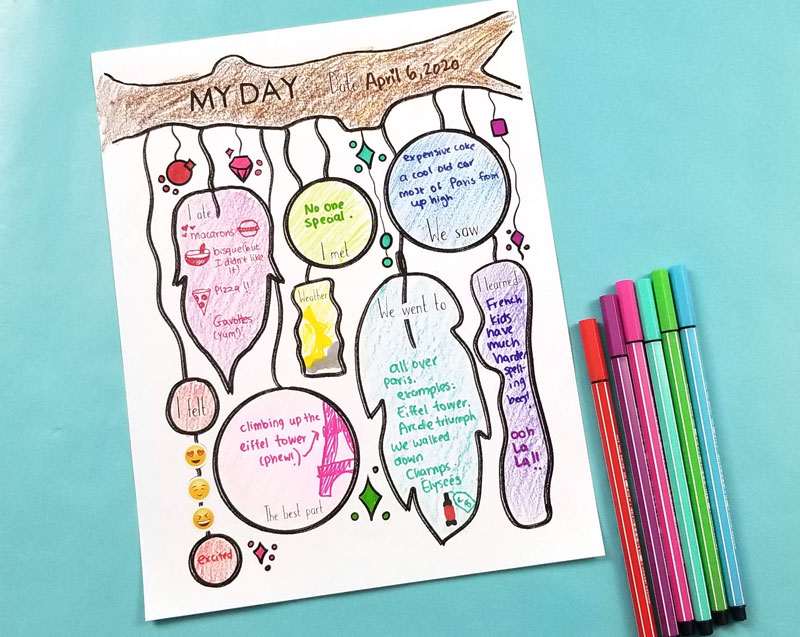 MY DAY Date April 6, 2020
I ate
macarons
bisque (but
I didn't like
it)
Pizza !!
Gavottes
(yum!)
No one
special.
I met
expensive coke
a cool old car
most of Paris from
up high
We saw
Weather
We went to
all over
paris.
examples:
Eiffel tower.
Arc de triumph
We walked
down
Champs
Elysées
I learned
French
kids
have
much
harder
spell-
ing
bees!
ooh
La
La!!
I felt
excited
climbing up the
eiffel tower
(phew!)
The best part